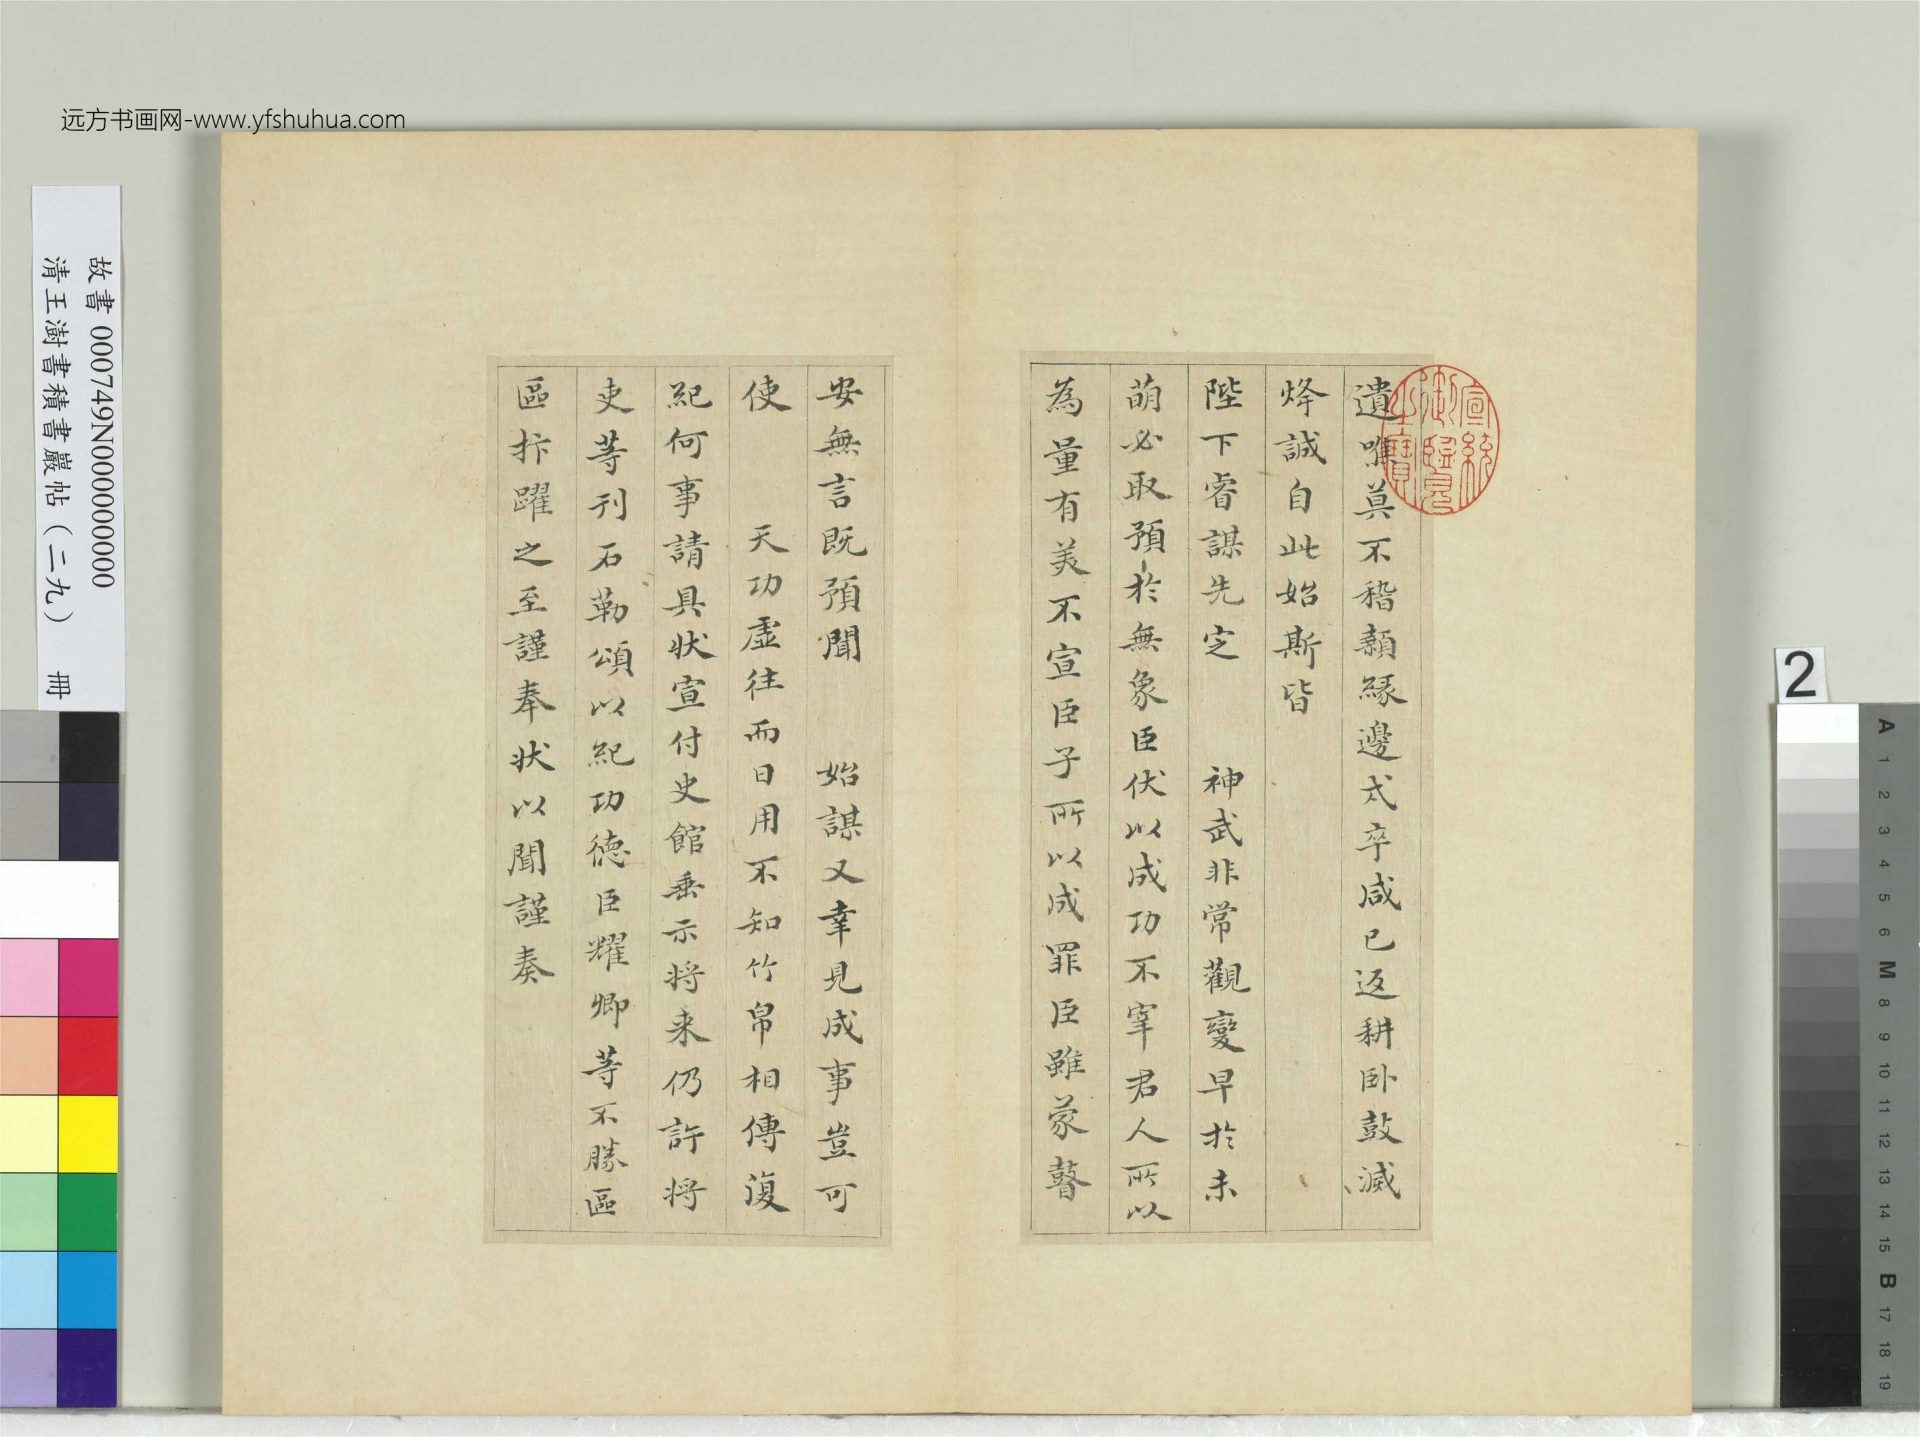 远方书画网-www.yfshuhua.com
故書 000749N000000000
清王澍書積書巖帖（二九） 冊
宣統
御覽
之寶
遺噍莫不稽顙緣邊戍卒咸已返耕卧鼓滅
烽誠自此始斯皆
陛下睿謀先定 神武非常觀變早於未
萌必取預於無象臣伏以成功不宰君人所以
為量有美不宣臣子所以成罪臣雖蒙瞽
安無言既預聞 始謀又幸見成事豈可
使 天功虛往而日用不知竹帛相傳復
紀何事請具狀宣付史館垂示將来仍許將
吏等刊石勒頌以紀功德臣耀卿等不勝區
區抃躍之至謹奉狀以聞謹奏
2
A
1
2
3
4
5
6
M
8
9
10
11
12
13
14
15
B
17
18
19